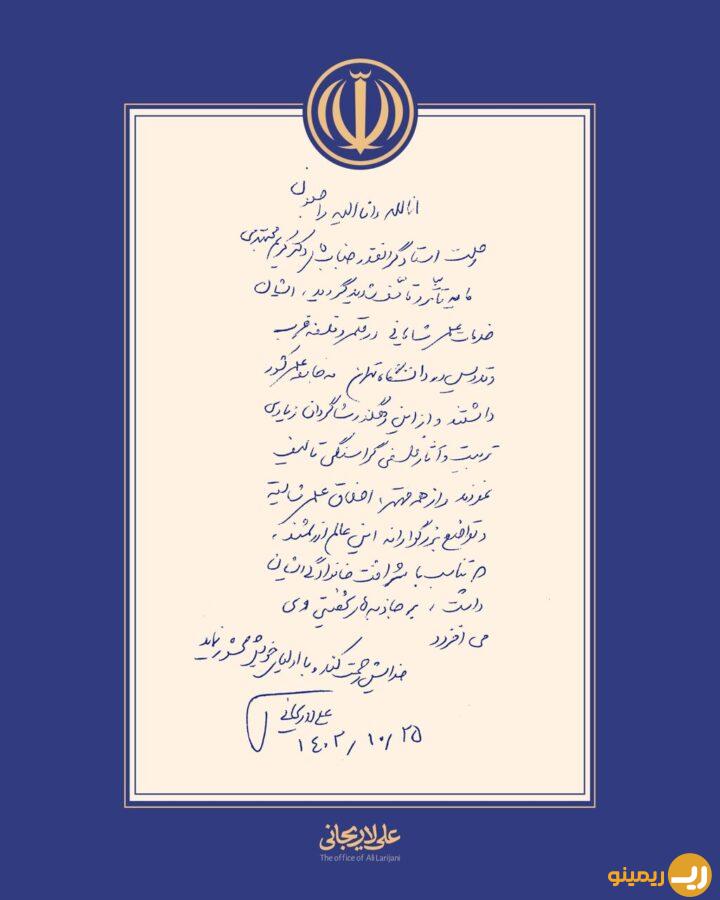 انا لله و انا الیه راجعون
رحلت استاد گرانقدر جناب آقای دکتر کریم مجتهدی
مایه تأثر و تأسف شدید گردید، ایشان
خدمات علمی شایانی در قلمرو فلسفه غرب
و تدریس در دانشگاه تهران به جامعه علمی کشور
داشتند و از این رهگذر شاگردان زیادی
تربیت و آثار فلسفی گرانسنگی تألیف
نمودند و از همه مهمتر، اخلاق علمی شایسته
و تواضع بزرگوارانه این عالم ارزشمند،
که تناسب با شرافت خانوادگی ایشان
داشت، بر جاذبه‌های شخصیتی وی
می افزود
خدایش رحمت کند و با اولیای خویش محشور نماید
علی لاریجانی
۱۴۰۲/۱۰/۲۵
علی لاریجانی
The office of Ali Larijani
ریمینو